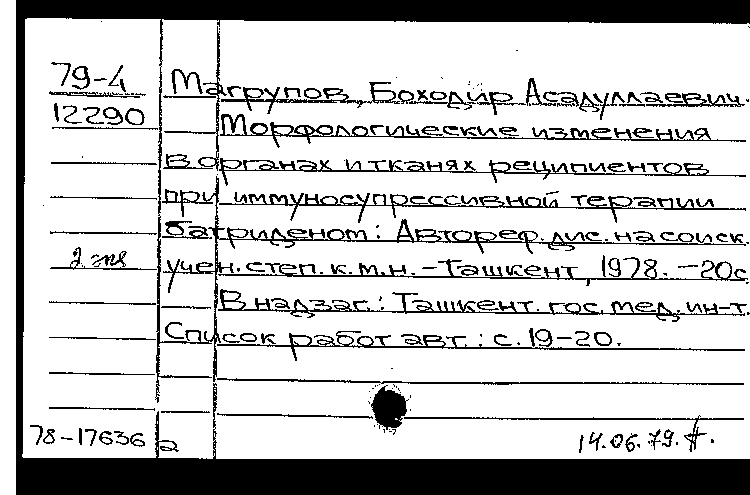 79-4 Магрупов, Боходир Асадуллаевич.
12290 Морфологические изменения
в органах и тканях реципиентов
при иммуносупрессивной терапии
батриденом: Автореф. дис. на соиск.
2 экз учен. степ. к.м.н. - Ташкент, 1978. - 20с
В надзаг.: Ташкент. гос. мед. ин-т.
Список работ авт.: с. 19-20.
78-17636 а 14.06.79.